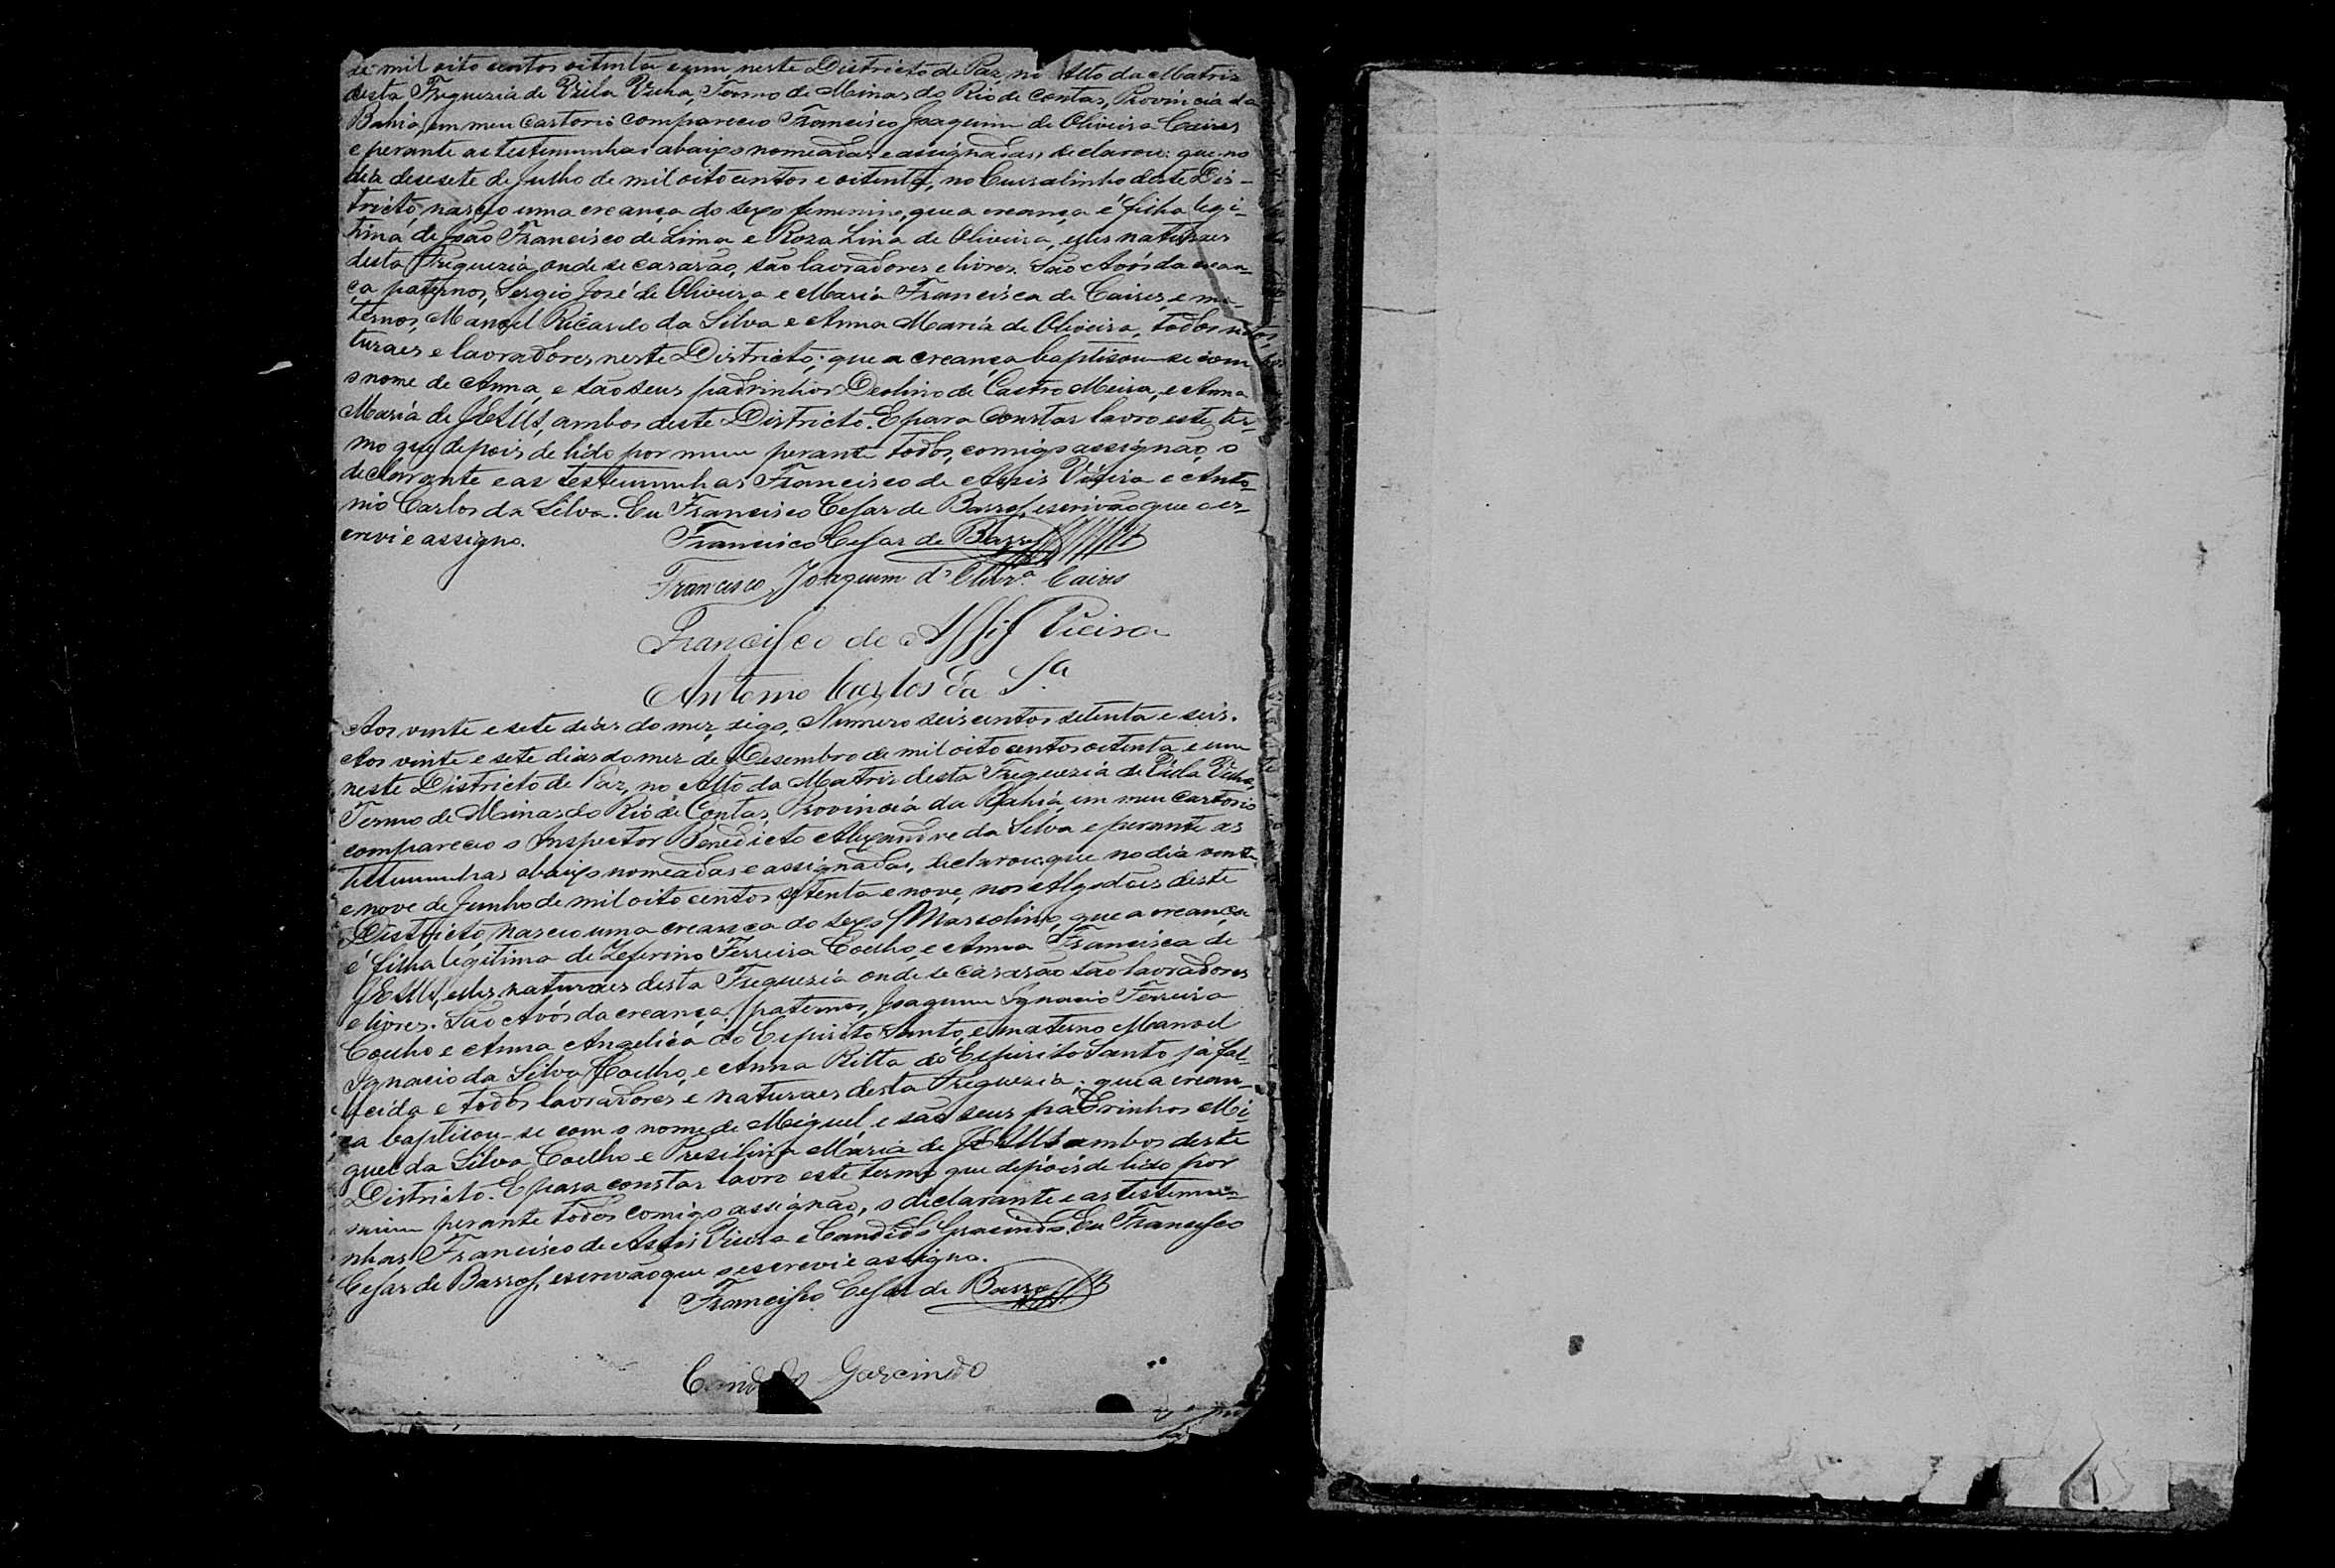 de mil oito centos oitenta e um, neste Districto de Paz, no Alto da Matriz
desta Freguezia de Villa Velha, Termo de Minas do Rio de Contas, Provincia da
Bahia, em meu Cartorio compareceo Francisco Joaquim de Oliveira Caires
e perante as testemunhas abaixo nomeadas e assignadas, declarou: que no
dia desesete de Julho de mil oito centos e oitenta, no Curralinho deste Dis-
tricto, nasceo uma creança do sexo feminino, que a creança é filha legi-
tima de João Francisco de Lima e Roza Lina de Oliveira, elles naturaes
desta Freguezia, onde se casarão, são lavradores e livres. São Avós da crean-
ça paternos, Sergio José de Oliveira e Maria Francisca de Caires, e ma-
ternos, Manoel Ricardo da Silva e Anna Maria de Oliveira, todos na-
turaes e lavradores neste Districto; que a creança baptisou-se com
o nome de Anna, e são seus padrinhos Deolino de Castro Meira, e Anna
Maria de JESUS, ambos deste Districto. E para constar lavro este ter-
mo que depois de lido por mim perante todos, comigo assignão, o
declarante e as testemunhas Francisco de Assis Vieira e Anto-
nio Carlos da Silva. Eu Francisco Cesar de Barros, escrivão que o es-
crevi e assigno.
Francisco Cesar de Barros
Francisco Joaquim d' Olivr.ª Caires
Francisco de Assis Vieira
Antonio Carlos da S.ª
Aos vinte e sete dias do mez, digo, Numero seis centos setenta e seis.
Aos vinte e sete dias do mez de Desembro de mil oito centos oitenta e um
neste Districto de Paz, no Alto da Matriz desta Freguezia de Villa Velha,
Termo de Minas do Rio de Contas, Provincia da Bahia, em meu Cartorio
compareceo o Inspector Benedicto Alexandre da Silva e perante as
testemunhas abaixo nomeadas e assignadas, declarou: que no dia vinte
e nove de Junho de mil oito centos setenta e nove, nos Algodões deste
Districto, nasceo uma creança do sexo Mascolino, que a creança
é filha legitima de Zeferino Ferreira Coelho, e Anna Francisca de
JESUS, elles naturaes desta Freguezia onde se casarão são lavradores
e livres. São Avós da creança paternos, Joaquim Ignacio Ferreira
Coelho e Anna Angelica do Espirito Santo, e materno Manoel
Ignacio da Silva Coelho, e Anna Ritta do Espirito Santo já fal-
lecida e todos lavradores e naturaes desta Freguezia; que a crean-
ça baptisou-se com o nome de Miguel, e são seus padrinhos Mi-
guel da Silva Coelho e Presilina Maria de JESUS ambos deste
Districto. E para constar lavro este termo que depois de lido por
mim perante todos comigo assignão, o declarante e as testemu-
nhas Francisco de Assis Vieira e Candido Gracindo. Eu Francisco
Cesar de Barros, escrivão que o escrevi e assigno.
Francisco Cesar de Barros
Candido Garcindo